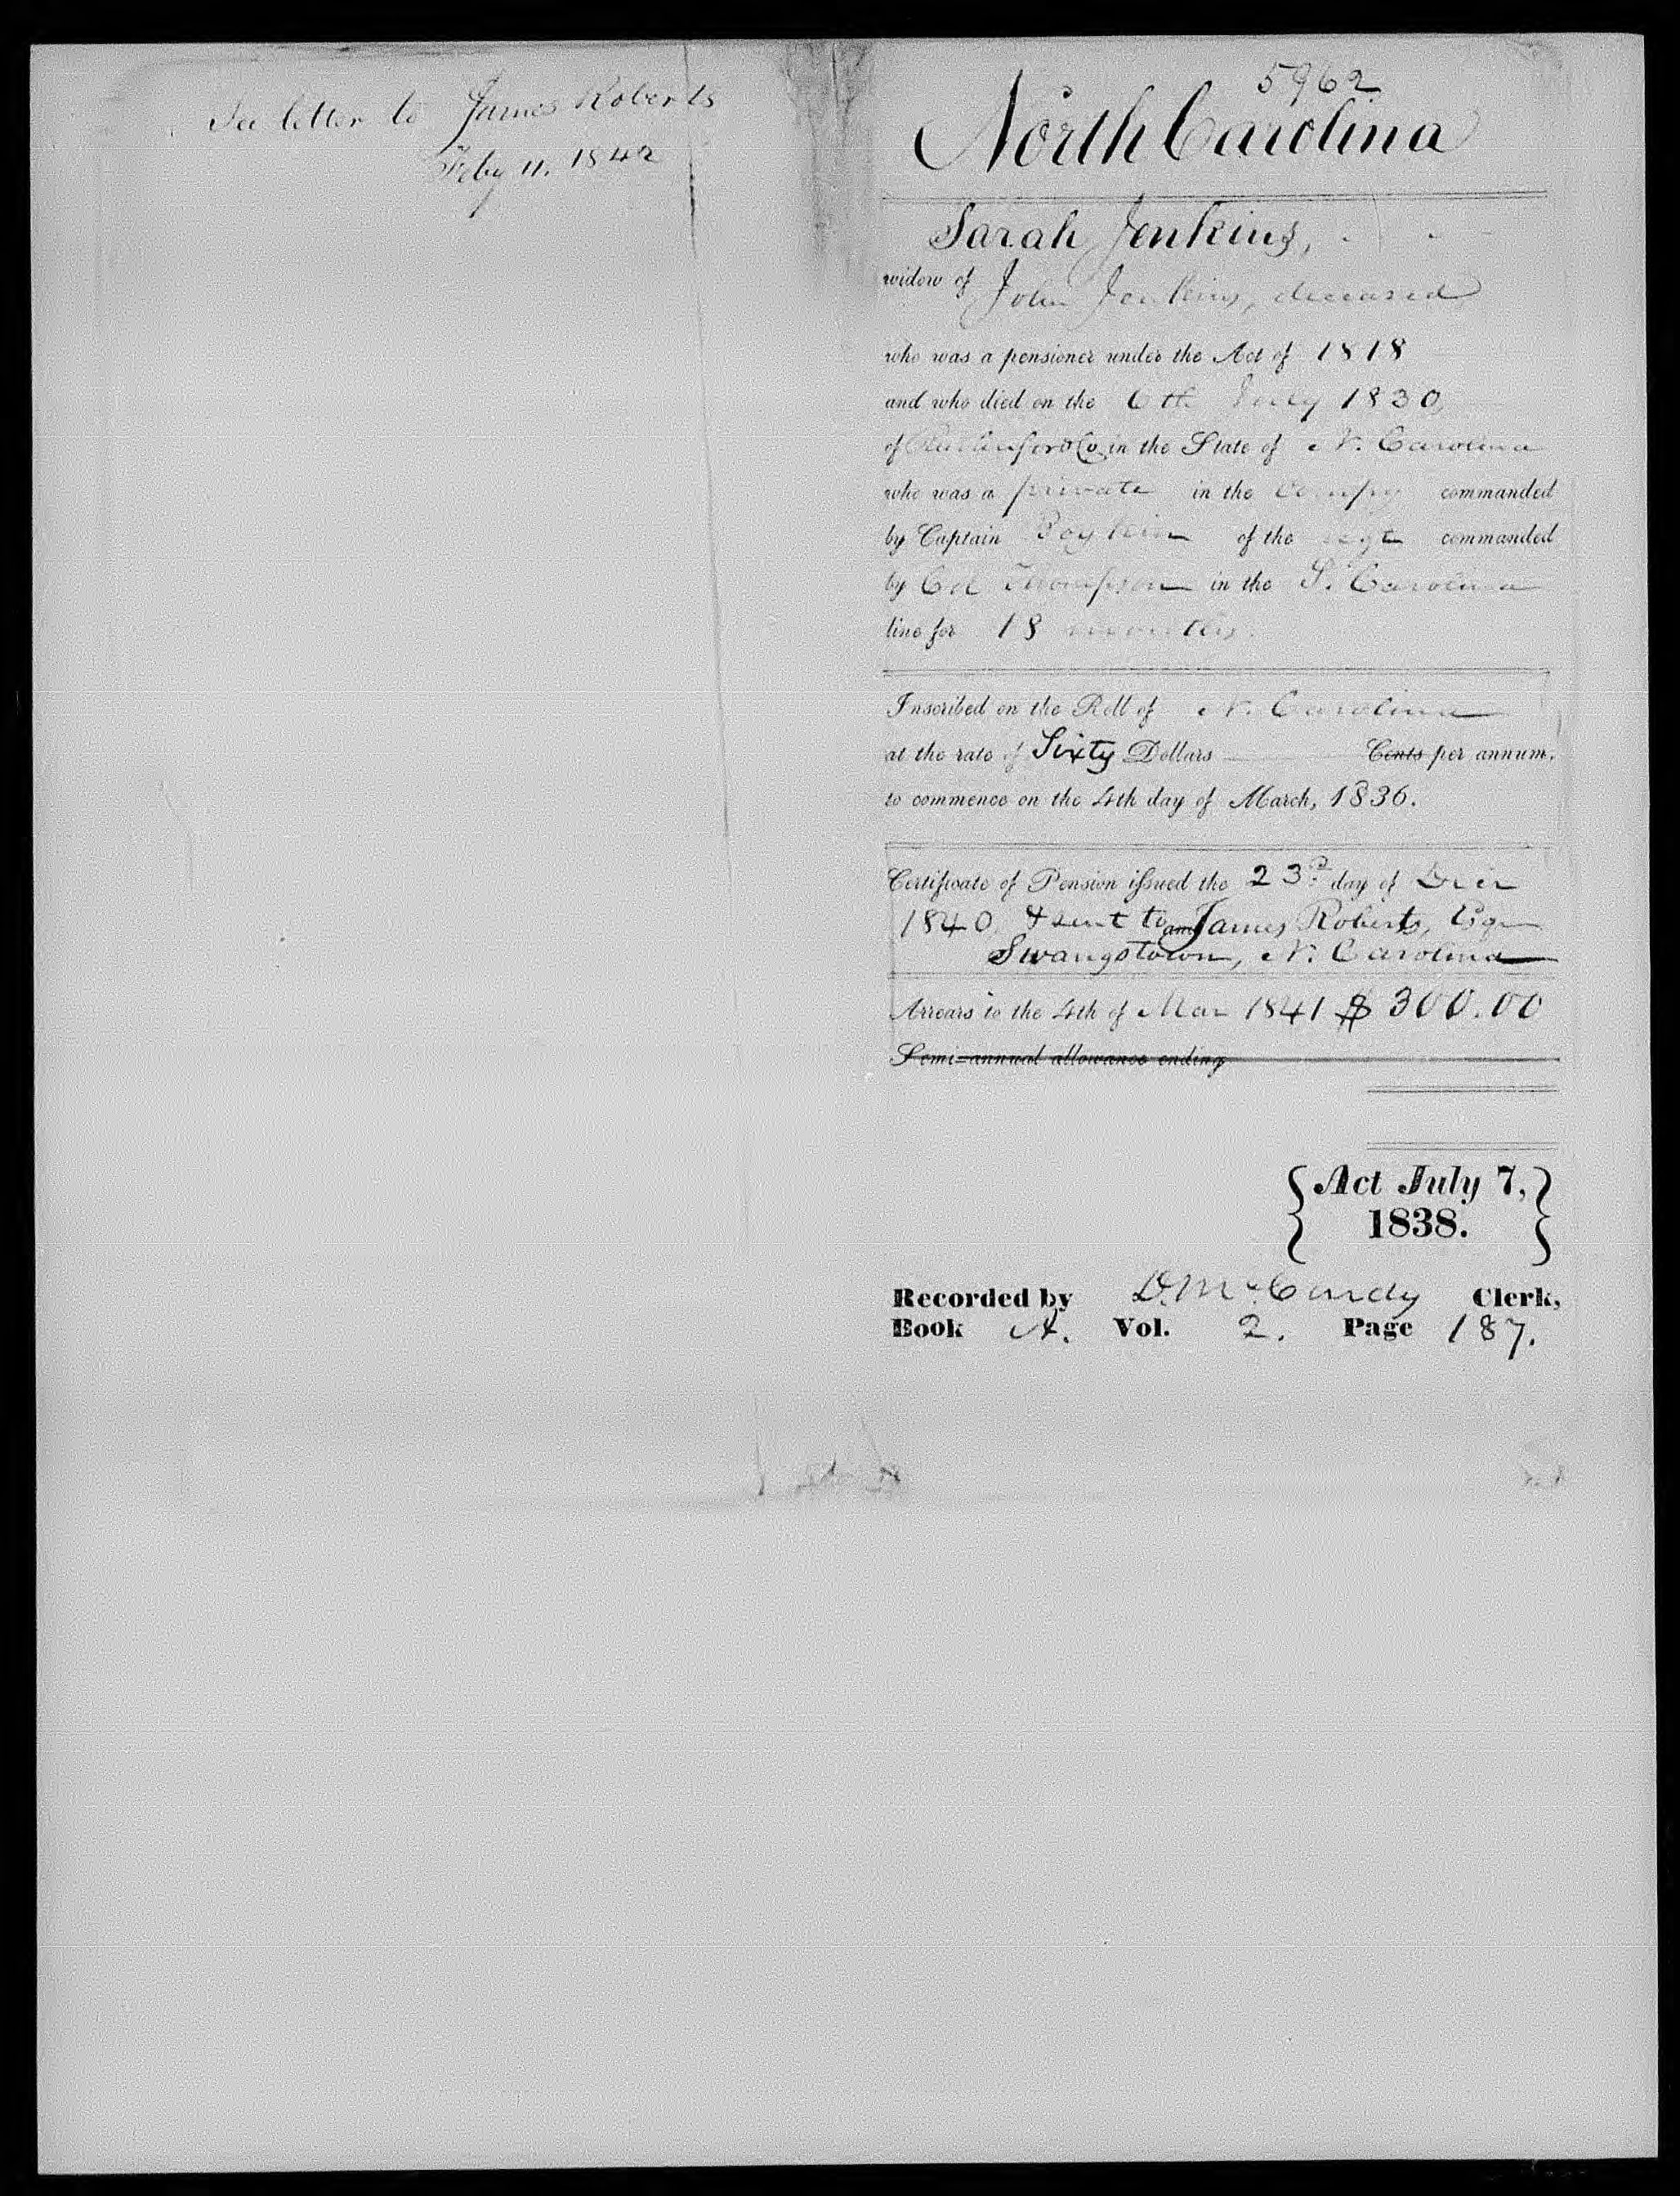 See letter to James Roberts
Feby 11. 1842
5962
North Carolina
Sarah Jenkins,
widow of John Jenkins, deceased
who was a pensioner under the Act of 1818
and who died on the 6th July 1830,
of Rutherford Co in the State of N. Carolina
who was a private in the compy commanded
by Captain Boykin of the regt commanded
by Col Thompson in the S. Carolina
line for 18 months.
Inscribed on the Roll of N. Carolina
at the rate of Sixty Dollars Cents per annum.
to commence on the 4th day of March, 1836.
Certificate of Pension issued the 23d day of Decr
1840 & sent to James Roberts, Esqr
Swangstown, N. Carolina
Arrears to the 4th of Mar 1841 $ 300.00
Semi-annual allowance ending
{Act July 7,}
1838.
Recorded by D. McCurdy Clerk,
Book A. Vol. 2. Page 187.